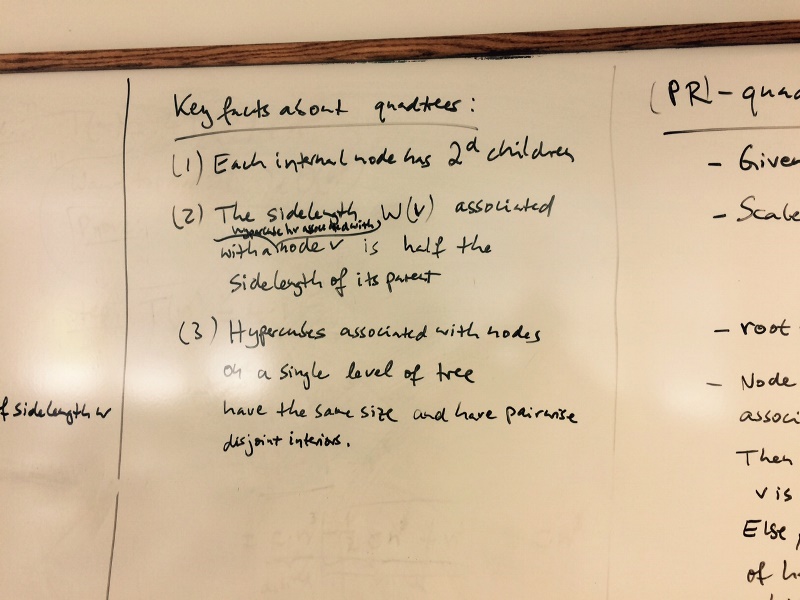 f sidelength w
Key facts about quadtrees :
(1) Each internal node has 2^d children
(2) The sidelength W(v) associated
hypercube hv associated with
with a node v is half the
sidelength of its parent
(3) Hypercubes associated with nodes
on a single level of tree
have the same size and have pairwise
disjoint interiors.
(PR) - quad
- Given
- Scale
- root
- Node
associ
Then
v is
Else
of h